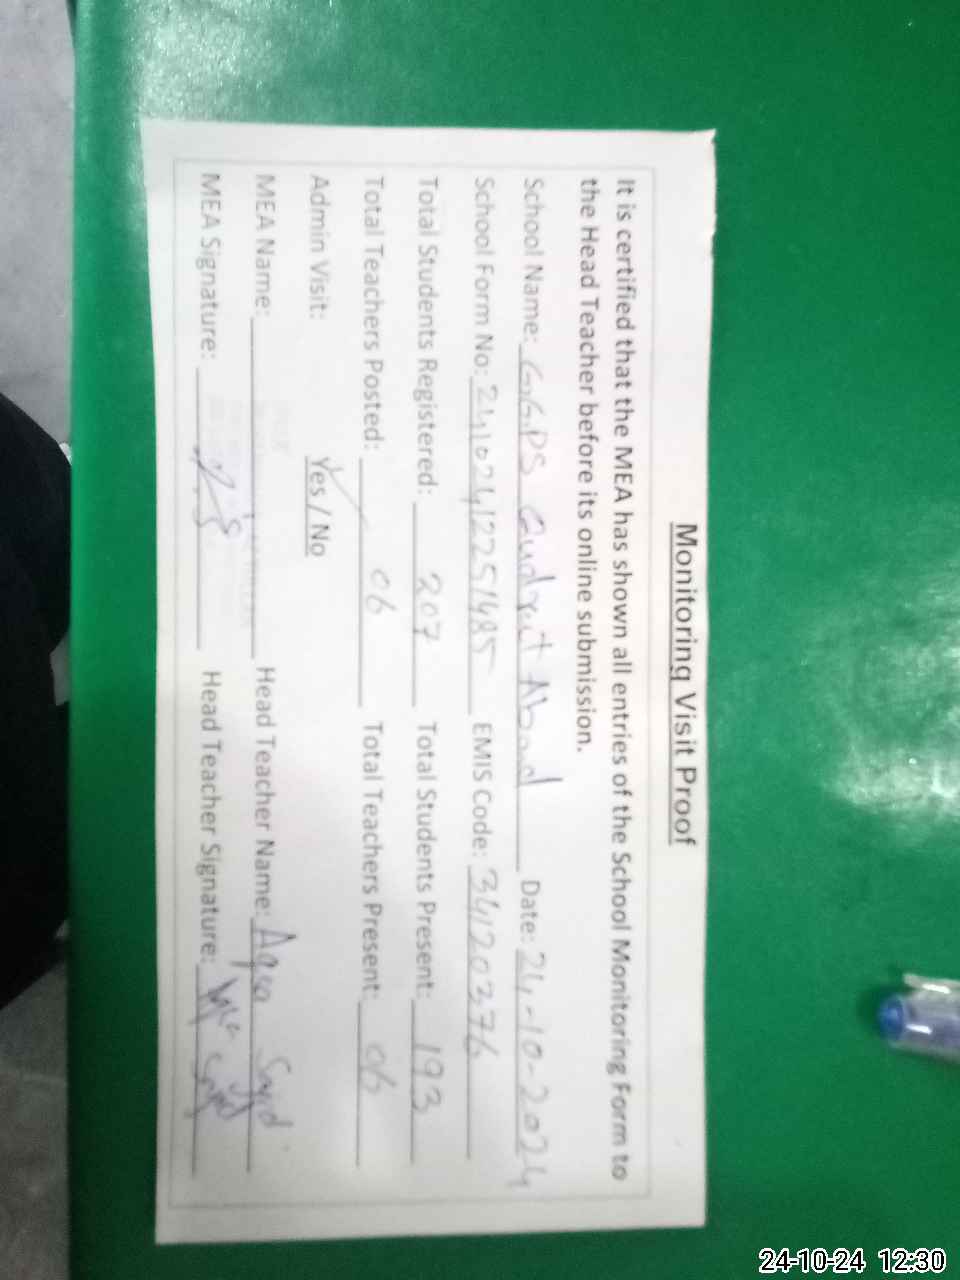 Monitoring Visit Proof
It is certified that the MEA has shown all entries of the School Monitoring Form to
the Head Teacher before its online submission.
School Name: G.G.PS Abad Date: 24-10-2024
School Form No: 241024122251485 EMIS Code: 34120376
Total Students Registered: 207 Total Students Present: 193
Total Teachers Posted: 06 Total Teachers Present: 06
Admin Visit: Yes / No
MEA Name: Head Teacher Name: Aqsa Sajid
MEA Signature: Head Teacher Signature:
24-10-24 12:30